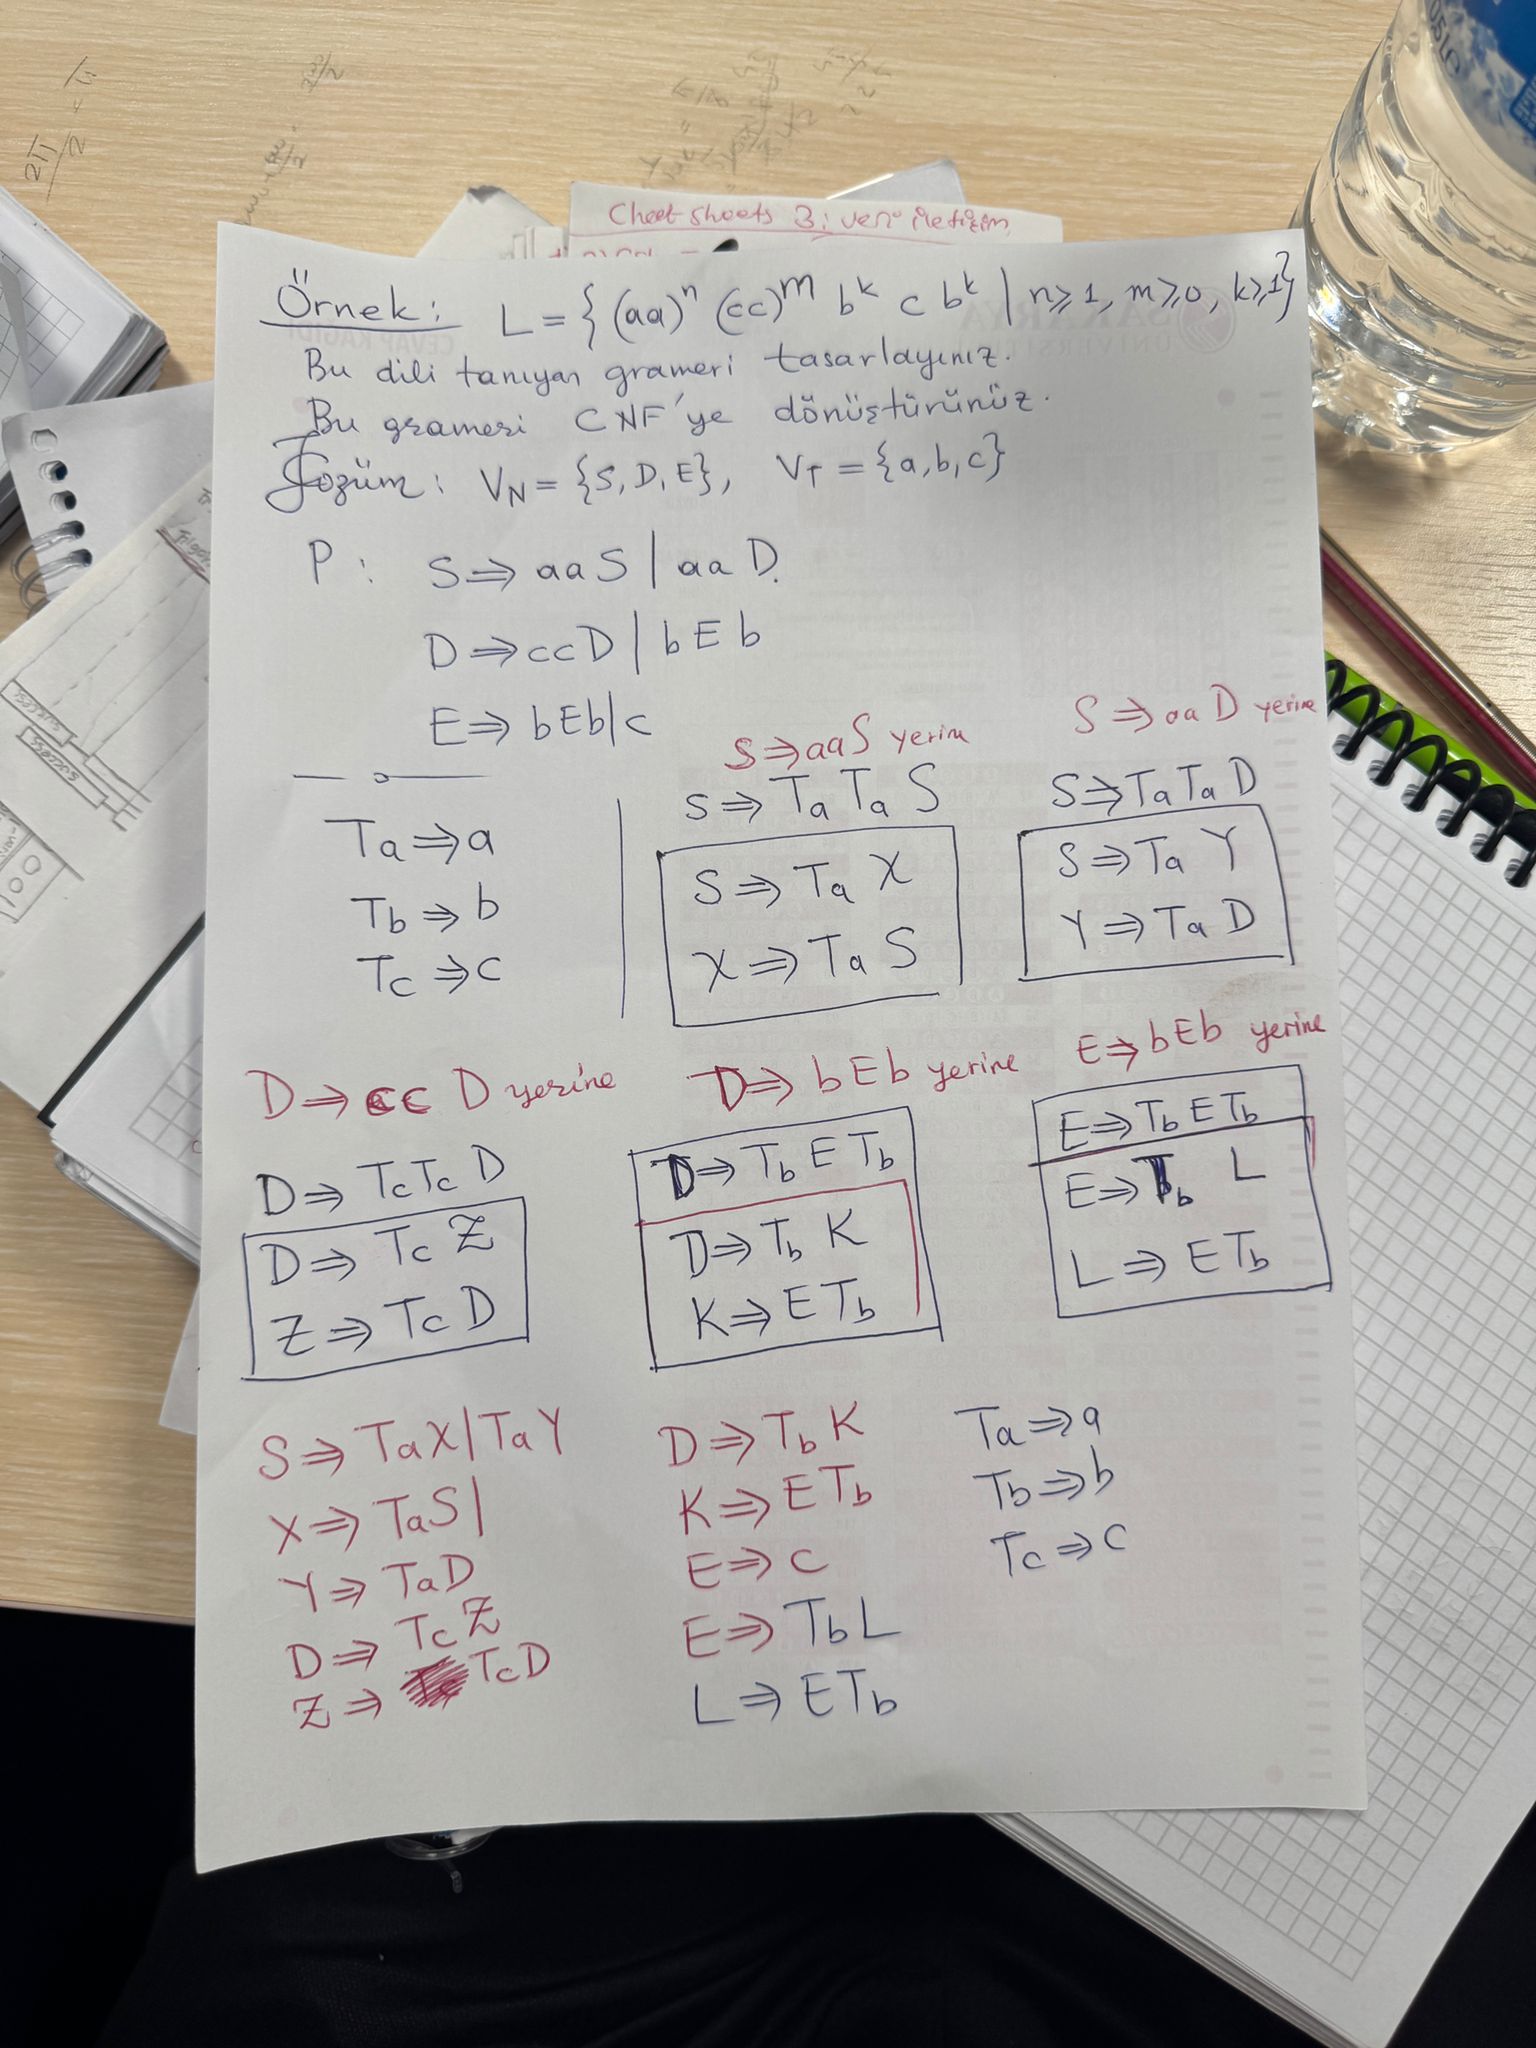 Cheat sheets 3: veri iletişim
Örnek: L = { (aa)ⁿ (cc)ᵐ bᵏ c bᵏ | n≥1, m≥0, k≥1}
Bu dili tanıyan grameri tasarlayınız.
Bu grameri CNF'ye dönüştürünüz.
Çözüm: V_N = {S, D, E}, V_T = {a, b, c}
P: S ⇒ aaS | aaD
D ⇒ ccD | bEb
E ⇒ bEb | c
Ta ⇒ a
Tb ⇒ b
Tc ⇒ c
S ⇒ aaS yerine
S ⇒ Ta Ta S
S ⇒ Ta X
X ⇒ Ta S
S ⇒ aa D yerine
S ⇒ Ta Ta D
S ⇒ Ta Y
Y ⇒ Ta D
D ⇒ cc D yerine
D ⇒ Tc Tc D
D ⇒ Tc Z
Z ⇒ Tc D
D ⇒ bEb yerine
D ⇒ Tb E Tb
D ⇒ Tb K
K ⇒ E Tb
E ⇒ bEb yerine
E ⇒ Tb E Tb
E ⇒ Tb L
L ⇒ E Tb
S ⇒ TaX | TaY
X ⇒ TaS |
Y ⇒ TaD
D ⇒ Tc Z
Z ⇒ TcD
D ⇒ Tb K
K ⇒ E Tb
E ⇒ c
E ⇒ Tb L
L ⇒ E Tb
Ta ⇒ a
Tb ⇒ b
Tc ⇒ c